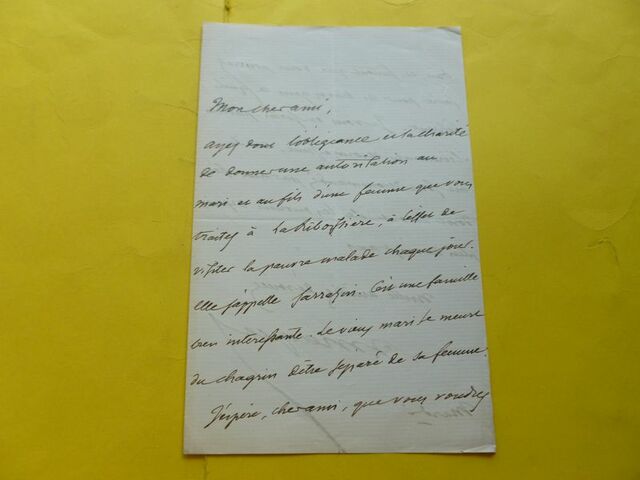 Mon cher ami,
ayez donc l'obligeance et la charité
de donner une autorisation au
mari et au fils d'une femme que vous
traitez à Lariboisière, à l'effet de
visiter la pauvre malade chaque jour.
Elle s'appelle Sarrazin. C'est une famille
bien intéressante. Le vieux mari se meurt
du chagrin d'être séparé de sa femme.
J'espère, cher ami, que vous voudrez